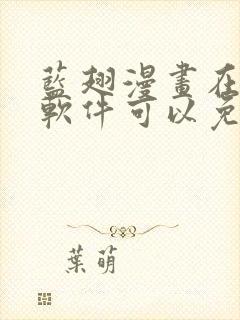 藍翅漫畫在
軟件可以免
葉萌